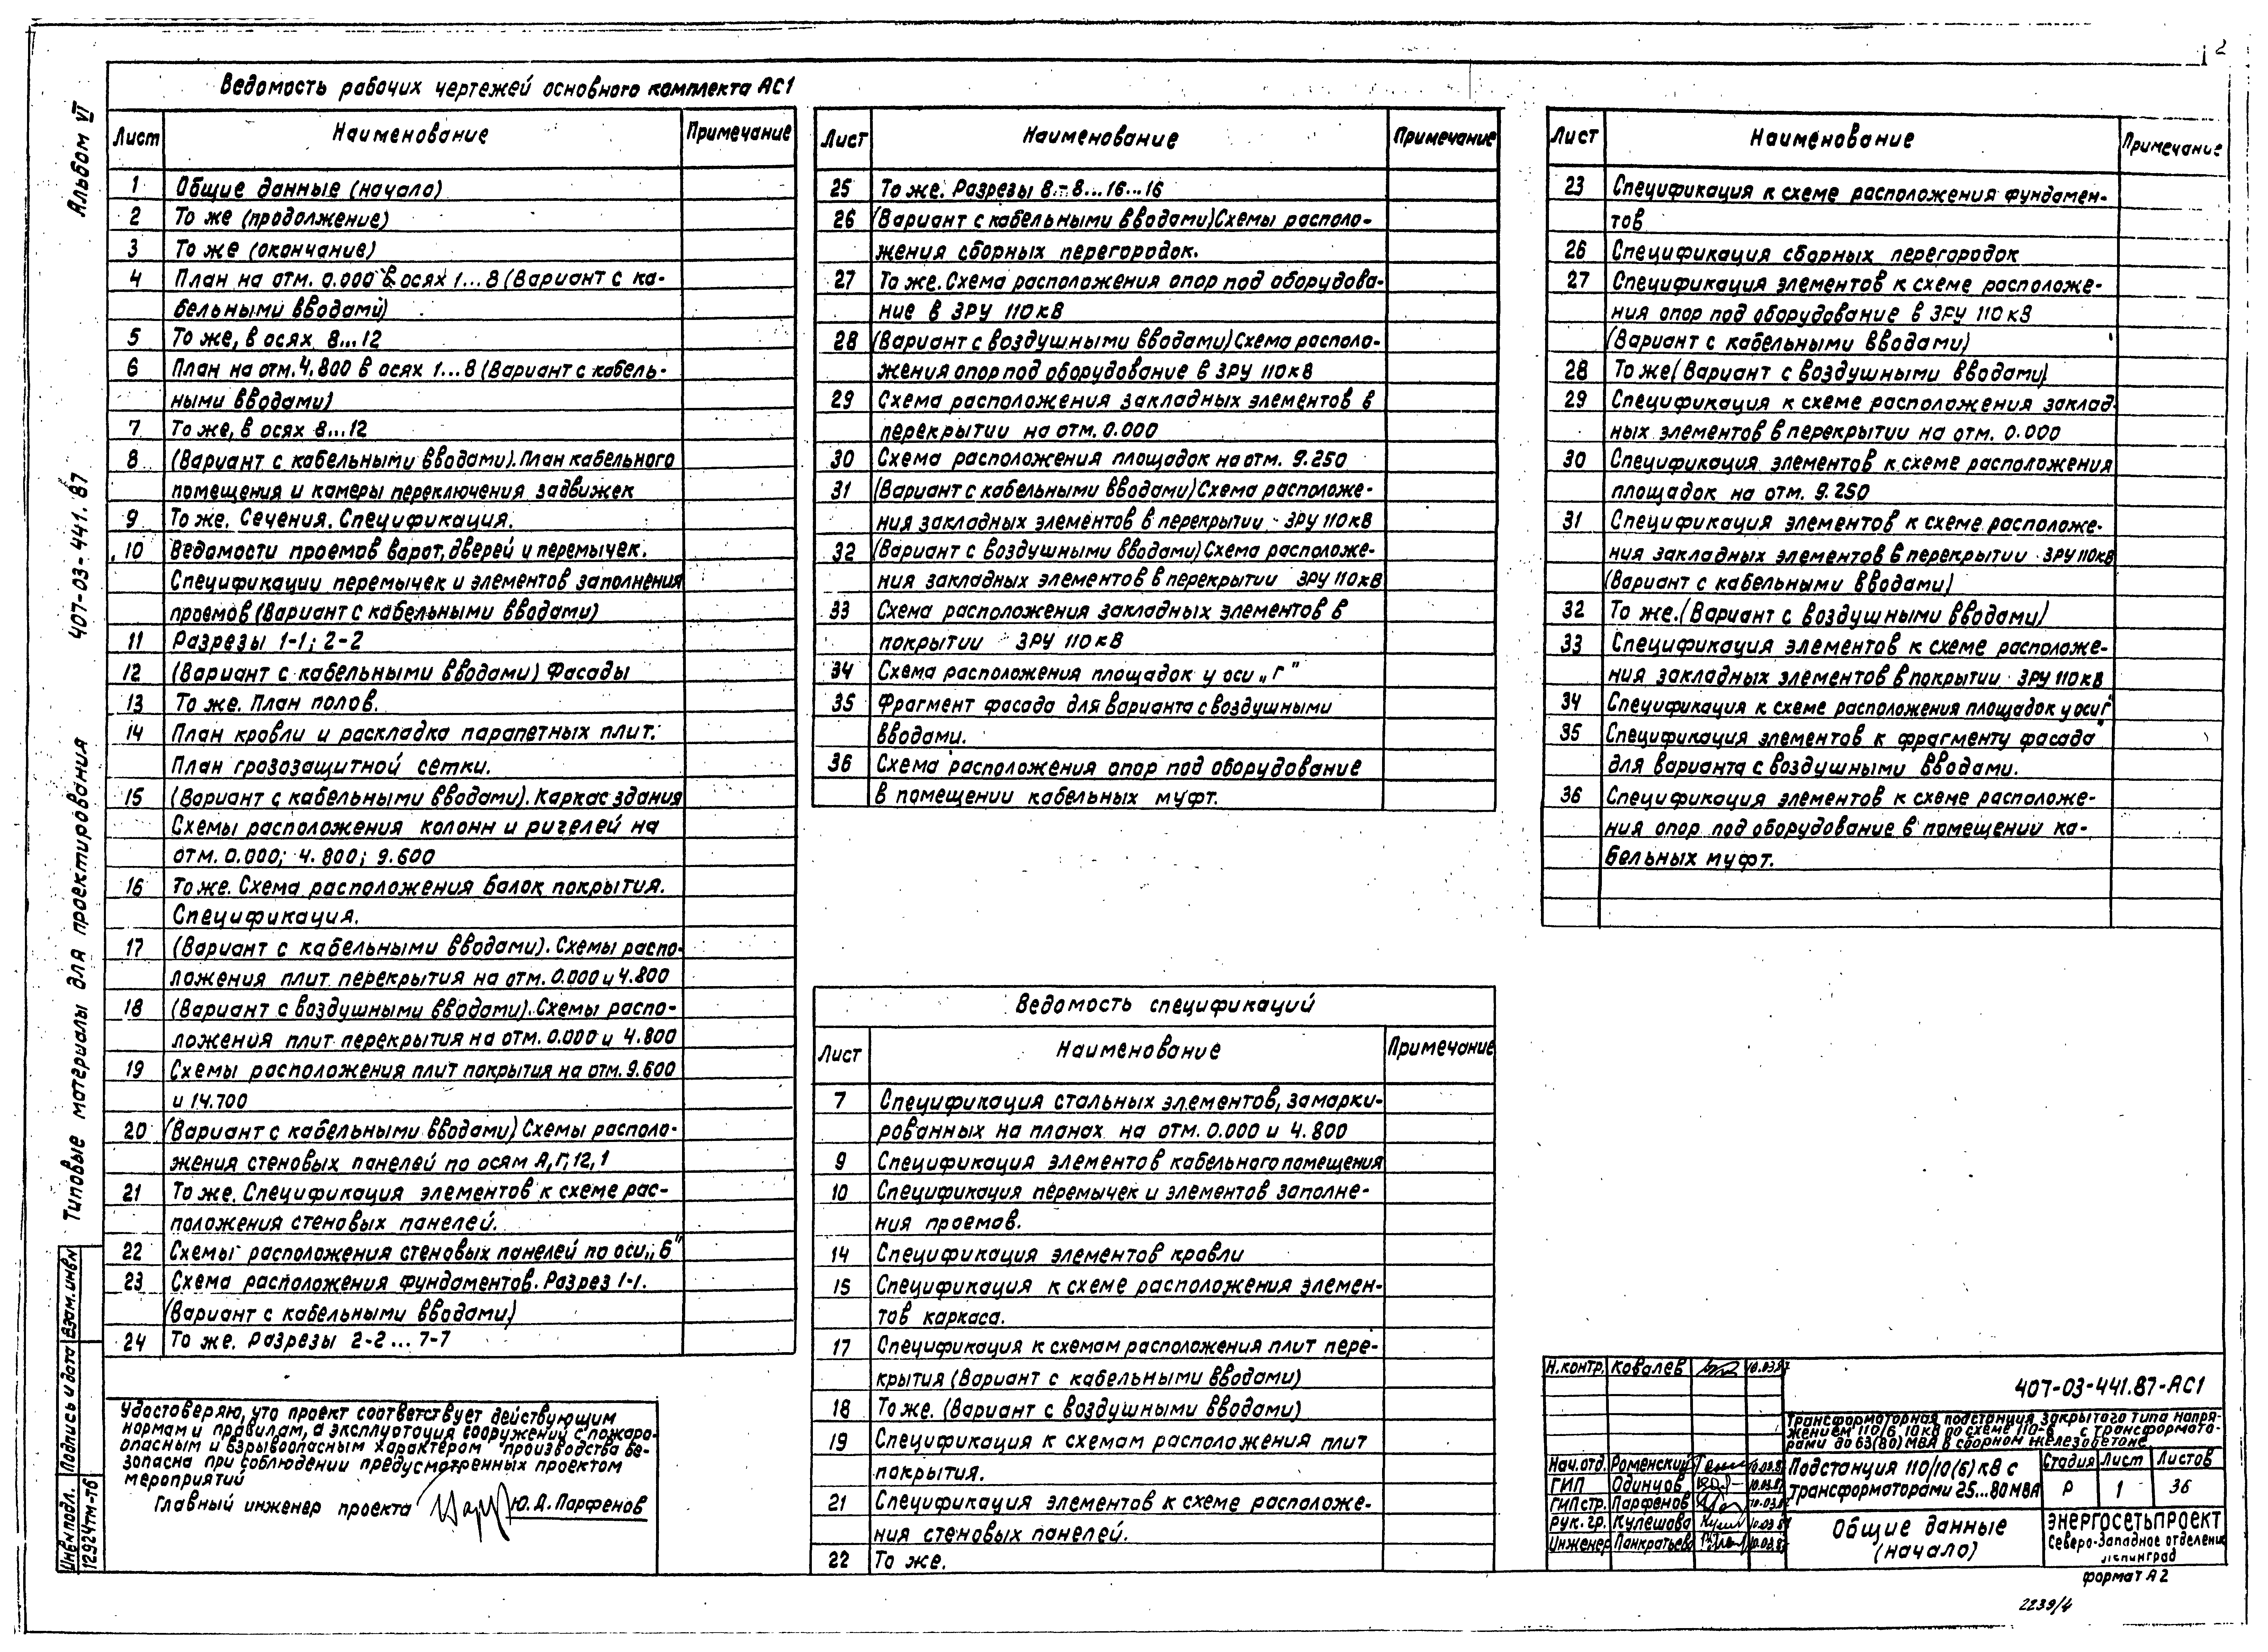 2
Альбом VI
407-03-441.87
Типовые материалы для проектирования
Взам. инв.№
Подпись и дата
Инв.№ подл.
12924тм-т6
Ведомость рабочих чертежей основного комплекта АС1
Лист Наименование Примечание
1 Общие данные (начало)
2 То же (продолжение)
3 То же (окончание)
4 План на отм. 0.000 в осях 1...8 (Вариант с ка-
бельными вводами)
5 То же, в осях 8...12
6 План на отм. 4.800 в осях 1...8 (Вариант с кабель-
ными вводами)
7 То же, в осях 8...12
8 (Вариант с кабельными вводами). План кабельного
помещения и камеры переключения задвижек
9 То же. Сечения. Спецификация.
10 Ведомости проемов ворот, дверей и перемычек.
Спецификации перемычек и элементов заполнения
проемов (Вариант с кабельными вводами)
11 Разрезы 1-1; 2-2
12 (Вариант с кабельными вводами) Фасады
13 То же. План полов.
14 План кровли и раскладка парапетных плит.
План грозозащитной сетки.
15 (Вариант с кабельными вводами). Каркас здания
Схемы расположения колонн и ригелей на
отм. 0.000; 4.800; 9.600
16 То же. Схема расположения балок покрытия.
Спецификация.
17 (Вариант с кабельными вводами). Схемы распо-
ложения плит перекрытия на отм. 0.000 и 4.800
18 (Вариант с воздушными вводами). Схемы распо-
ложения плит перекрытия на отм. 0.000 и 4.800
19 Схемы расположения плит покрытия на отм. 9.600
и 14.700
20 (Вариант с кабельными вводами) Схемы располо-
жения стеновых панелей по осям А, Г, 12, 1
21 То же. Спецификация элементов к схеме рас-
положения стеновых панелей.
22 Схемы расположения стеновых панелей по оси „Б"
23 Схема расположения фундаментов. Разрез 1-1.
(Вариант с кабельными вводами)
24 То же. Разрезы 2-2...7-7
Удостоверяю, что проект соответствует действующим
нормам и правилам, а эксплуатация сооружений с пожаро-
опасным и взрывоопасным характером производства бе-
зопасна при соблюдении предусмотренных проектом
мероприятий
Главный инженер проекта Ю.А. Парфенов
Лист Наименование Примечание
25 То же. Разрезы 8-8...16...16
26 (Вариант с кабельными вводами) Схемы располо-
жения сборных перегородок.
27 То же. Схема расположения опор под оборудова-
ние в ЗРУ 110 кВ
28 (Вариант с воздушными вводами) Схема располо-
жения опор под оборудование в ЗРУ 110 кВ
29 Схема расположения закладных элементов в
перекрытии на отм. 0.000
30 Схема расположения площадок на отм. 9.250
31 (Вариант с кабельными вводами) Схема расположе-
ния закладных элементов в перекрытии ЗРУ 110 кВ
32 (Вариант с воздушными вводами) Схема расположе-
ния закладных элементов в перекрытии ЗРУ 110 кВ
33 Схема расположения закладных элементов в
покрытии ЗРУ 110 кВ
34 Схема расположения площадок у оси „Г"
35 Фрагмент фасада для варианта с воздушными
вводами.
36 Схема расположения опор под оборудование
в помещении кабельных муфт.
Ведомость спецификаций
Лист Наименование Примечание
7 Спецификация стальных элементов, замарки-
рованных на планах на отм. 0.000 и 4.800
9 Спецификация элементов кабельного помещения
10 Спецификация перемычек и элементов заполне-
ния проемов.
14 Спецификация элементов кровли
15 Спецификация к схеме расположения элемен-
тов каркаса.
17 Спецификация к схемам расположения плит пере-
крытия (Вариант с кабельными вводами)
18 То же. (Вариант с воздушными вводами)
19 Спецификация к схемам расположения плит
покрытия.
21 Спецификация элементов к схеме расположе-
ния стеновых панелей.
22 То же.
Лист Наименование Примечание
23 Спецификация к схеме расположения фундамен-
тов
26 Спецификация сборных перегородок
27 Спецификация элементов к схеме расположе-
ния опор под оборудование в ЗРУ 110 кВ
(Вариант с кабельными вводами)
28 То же (Вариант с воздушными вводами)
29 Спецификация к схеме расположения заклад-
ных элементов в перекрытии на отм. 0.000
30 Спецификация элементов к схеме расположения
площадок на отм. 9.250
31 Спецификация элементов к схеме расположе-
ния закладных элементов в перекрытии ЗРУ 110 кВ
(Вариант с кабельными вводами)
32 То же. (Вариант с воздушными вводами)
33 Спецификация элементов к схеме расположе-
ния закладных элементов в покрытии ЗРУ 110 кВ
34 Спецификация к схеме расположения площадок у оси „Г"
35 Спецификация элементов к фрагменту фасада
для варианта с воздушными вводами.
36 Спецификация элементов к схеме расположе-
ния опор под оборудование в помещении ка-
бельных муфт.
Н. контр. Ковалев 10.03.87
Нач. отд. Роменский 10.03.87
ГИП Одинцов 10.03.87
ГИП стр. Парфенов 10.03.87
Рук. гр. Кулешова 10.03.87
Инженер Панкратьева 10.03.87
407-03-441.87-АС1
Трансформаторная подстанция закрытого типа напря-
жением 110/6-10 кВ по схеме 110-6 с трансформато-
рами до 63(80) МВА в сборном железобетоне
Подстанция 110/10(6) кВ с
трансформаторами 25...80 МВА
Стадия Лист Листов
Р 1 36
Общие данные
(начало)
ЭНЕРГОСЕТЬПРОЕКТ
Северо-Западное отделение
Ленинград
формат А2
2239/4